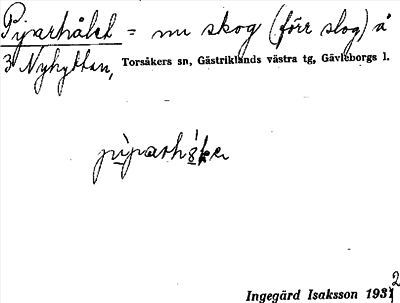 Pijarhålet = nu skog (förr slog) å
3 Nyhyttan, Torsåkers sn, Gästriklands västra tg, Gävleborgs l.
Ingegärd Isaksson 1932